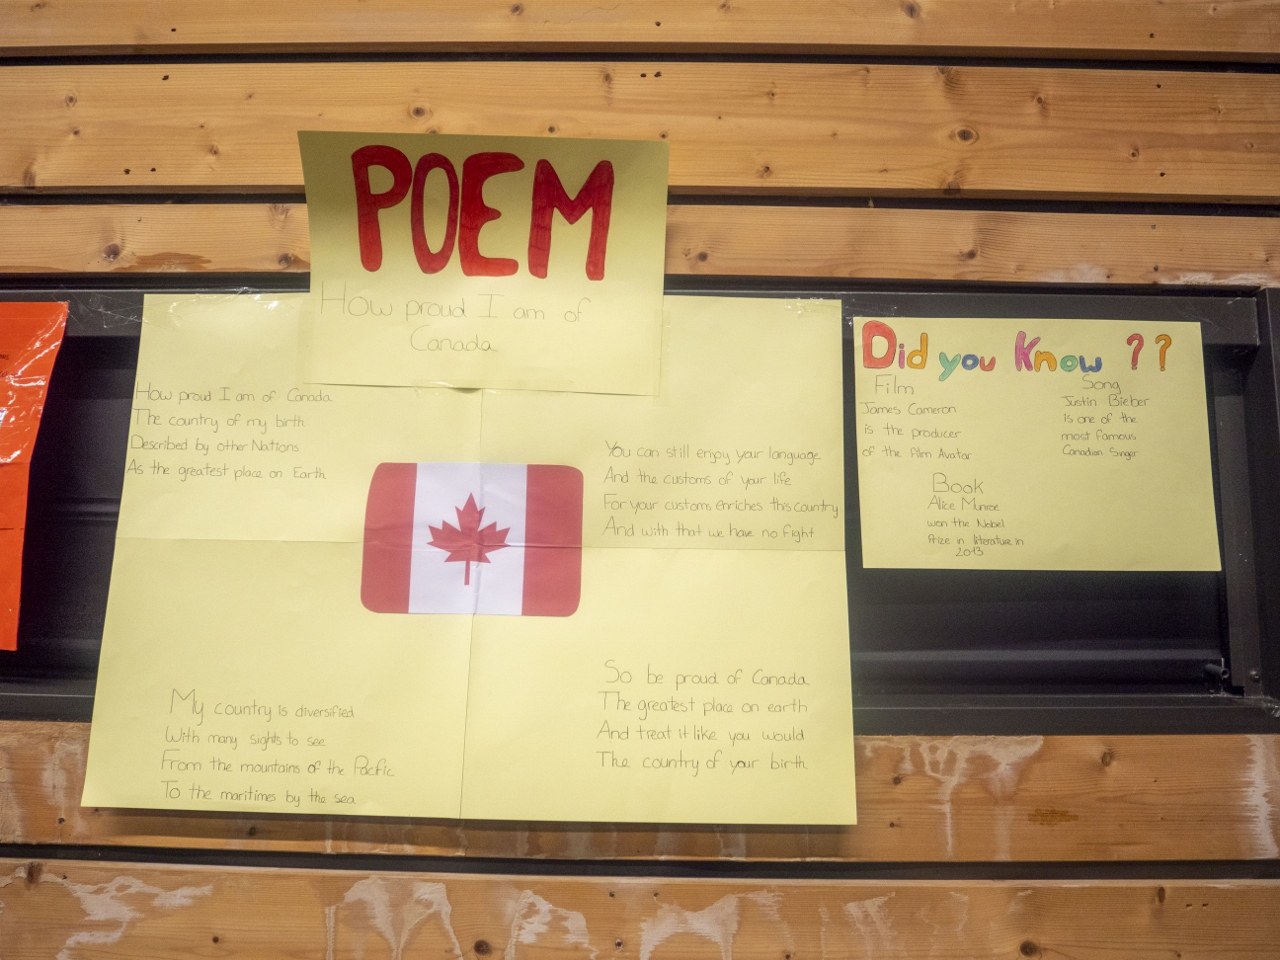 POEM
How proud I am of
Canada
How proud I am of Canada
The country of my birth
Described by other Nations
As the greatest place on Earth
My country is diversified
With many sights to see
From the mountains of the Pacific
To the maritimes by the sea
You can still enjoy your language
And the customs of your life
For your customs enriches this country
And with that we have no fight
So be proud of Canada
The greatest place on earth
And treat it like you would
The country of your birth
Did you Know ??
Film
James Cameron
is the producer
of the film Avatar
Song
Justin Bieber
is one of the
most famous
Canadian Singer
Book
Alice Munroe
won the Nobel
Prize in literature in
2013